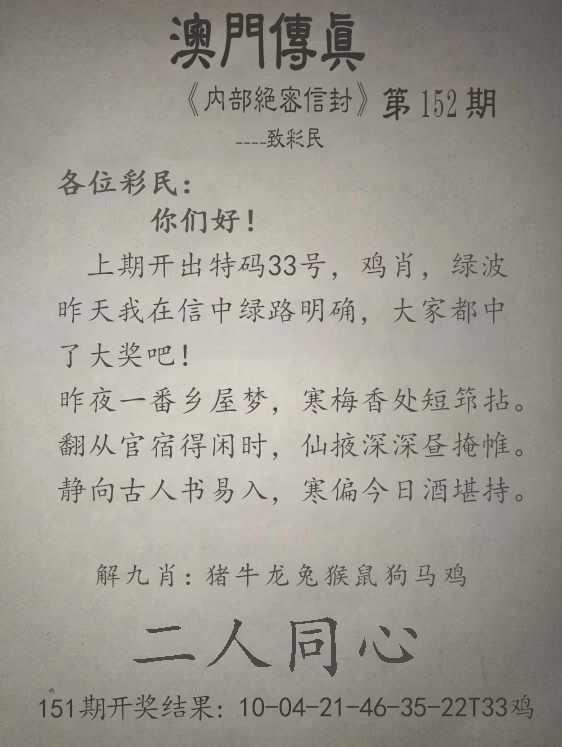 澳門傳眞
《内部絕密信封》第152期
----致彩民
各位彩民：
你们好！
上期开出特码33号，鸡肖，绿波
昨天我在信中绿路明确，大家都中
了大奖吧！
昨夜一番乡屋梦，寒梅香处短筇拈。
翻从官宿得闲时，仙掖深深昼掩帷。
静向古人书易入，寒偏今日酒堪持。
解九肖：猪牛龙兔猴鼠狗马鸡
二人同心
151期开奖结果：10-04-21-46-35-22T33鸡